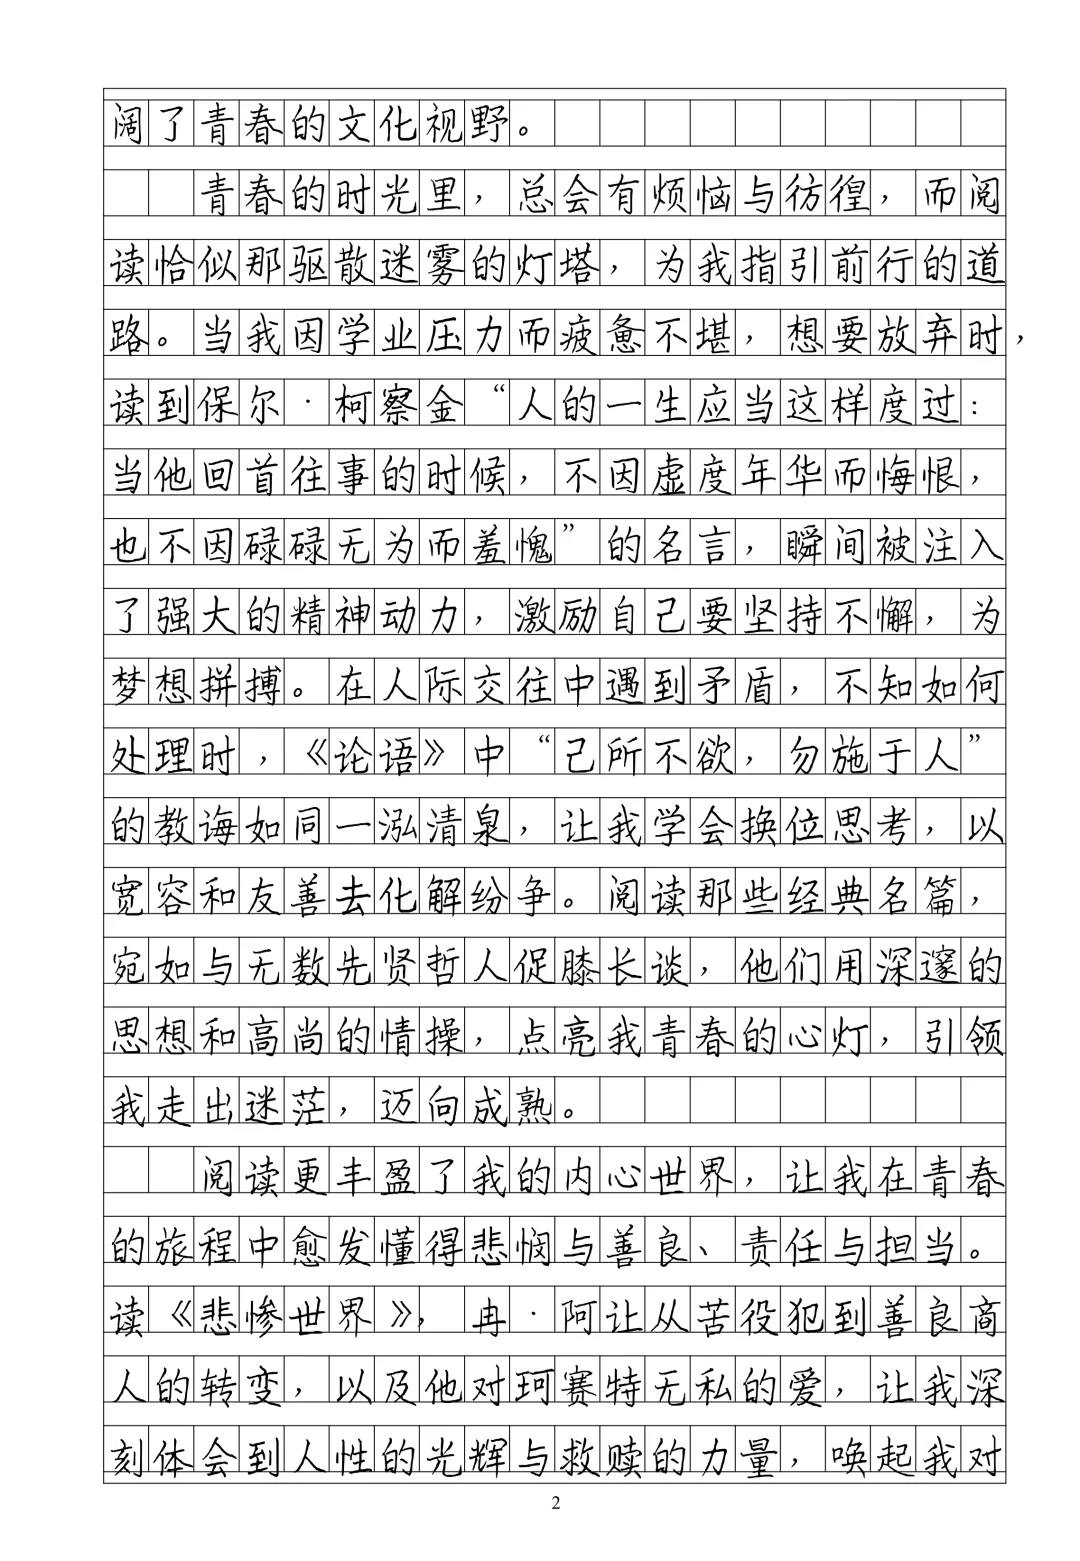 阔了青春的文化视野。
青春的时光里，总会有烦恼与彷徨，而阅
读恰似那驱散迷雾的灯塔，为我指引前行的道
路。当我因学业压力而疲惫不堪，想要放弃时，
读到保尔·柯察金“人的一生应当这样度过：
当他回首往事的时候，不因虚度年华而悔恨，
也不因碌碌无为而羞愧”的名言，瞬间被注入
了强大的精神动力，激励自己要坚持不懈，为
梦想拼搏。在人际交往中遇到矛盾，不知如何
处理时，《论语》中“己所不欲，勿施于人”
的教诲如同一泓清泉，让我学会换位思考，以
宽容和友善去化解纷争。阅读那些经典名篇，
宛如与无数先贤哲人促膝长谈，他们用深邃的
思想和高尚的情操，点亮我青春的心灯，引领
我走出迷茫，迈向成熟。
阅读更丰盈了我的内心世界，让我在青春
的旅程中愈发懂得悲悯与善良、责任与担当。
读《悲惨世界》，冉·阿让从苦役犯到善良商
人的转变，以及他对珂赛特无私的爱，让我深
刻体会到人性的光辉与救赎的力量，唤起我对
2